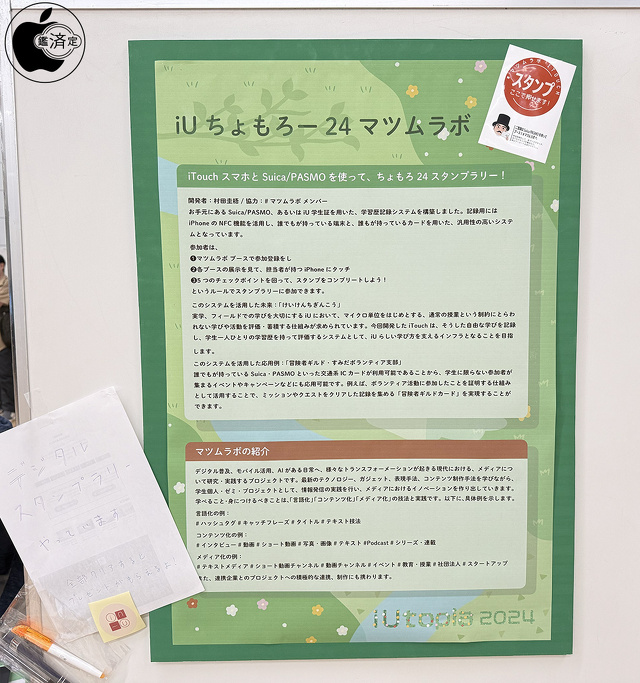 鑑済定
iUちょもろー24マツムラボ
スタンプ
ここで押せます!
iTouch スマホと Suica/PASMO を使って、ちょもろ 24 スタンプラリー！
開発者：村田圭梧 / 協力：# マツムラボ メンバー
お手元にある Suica/PASMO、あるいは iU 学生証を用いた、学習歴記録システムを構築しました。記録用には
iPhone の NFC 機能を活用し、誰でもが持っている端末と、誰もが持っているカードを用いた、汎用性の高いシステ
ムとなっています。
参加者は、
❶マツムラボ ブースで参加登録をし
❷各ブースの展示を見て、担当者が持つ iPhone にタッチ
❸5 つのチェックポイントを回って、スタンプをコンプリートしよう！
というルールでスタンプラリーに参加できます。
このシステムを活用した未来：「けいけんちぎんこう」
実学、フィールドでの学びを大切にする iU において、マイクロ単位をはじめとする、通常の授業という制約にとらわ
れない学びや活動を評価・蓄積する仕組みが求められています。今回開発した iTouch は、そうした自由な学びを記録
し、学生一人ひとりの学習歴を持って評価するシステムとして、iU らしい学び方を支えるインフラとなることを目指
します。
このシステムを活用した応用例：「冒険者ギルド・すみだボランティア支部」
誰でもが持っている Suica・PASMO といった交通系 IC カードが利用可能であることから、学生に限らない参加者が
集まるイベントやキャンペーンなどにも応用可能です。例えば、ボランティア活動に参加したことを証明する仕組み
として活用することで、ミッションやクエストをクリアした記録を集める「冒険者ギルドカード」を実現することが
できます。
マツムラボの紹介
デジタル普及、モバイル活用、AI がある日常へ、様々なトランスフォーメーションが起きる現代における、メディアにつ
いて研究・実践するプロジェクトです。最新のテクノロジー、ガジェット、表現手法、コンテンツ制作手法を学びながら、
学生個人・ゼミ・プロジェクトとして、情報発信の実践を行い、メディアにおけるイノベーションを作り出していきます。
学べること・身につけるべきことは、「言語化」「コンテンツ化」「メディア化」の技法と実践です。以下に、具体例を示します。
言語化の例：
# ハッシュタグ # キャッチフレーズ # タイトル # テキスト技法
コンテンツ化の例：
# インタビュー # 動画 # ショート動画 # 写真・画像 # テキスト #Podcast # シリーズ・連載
メディア化の例：
# テキストメディア # ショート動画チャンネル # 動画チャンネル # イベント # 教育・授業 # 社団法人 # スタートアップ
また、連携企業とのプロジェクトへの積極的な連携、制作にも携わります。
iUtopia 2024
デジタル
スタンプラリー
やっています